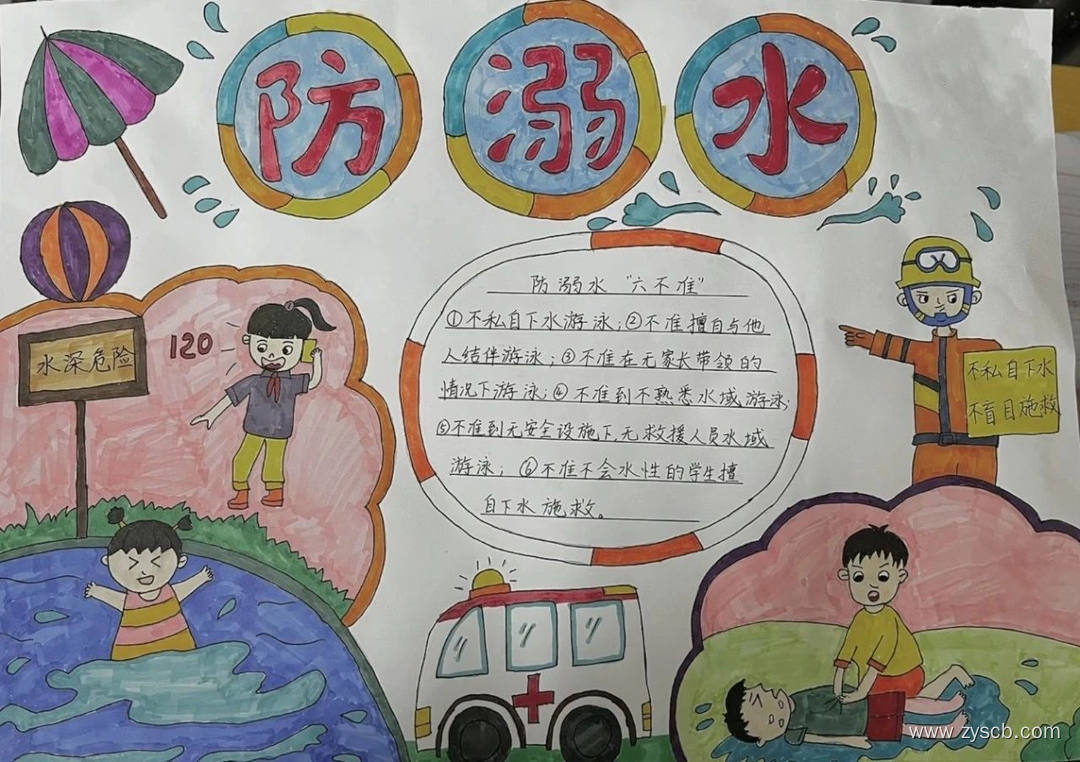 防溺水
防溺水“六不准”
①不私自下水游泳;②不准擅自与他
人结伴游泳;③不准在无家长带领的
情况下游泳;④不准到不熟悉水域游泳;
⑤不准到无安全设施下无救援人员水域
游泳;⑥不准不会水性的学生擅
自下水施救。
水深危险
120
不私自下水
不盲目施救
www.zyscb.com